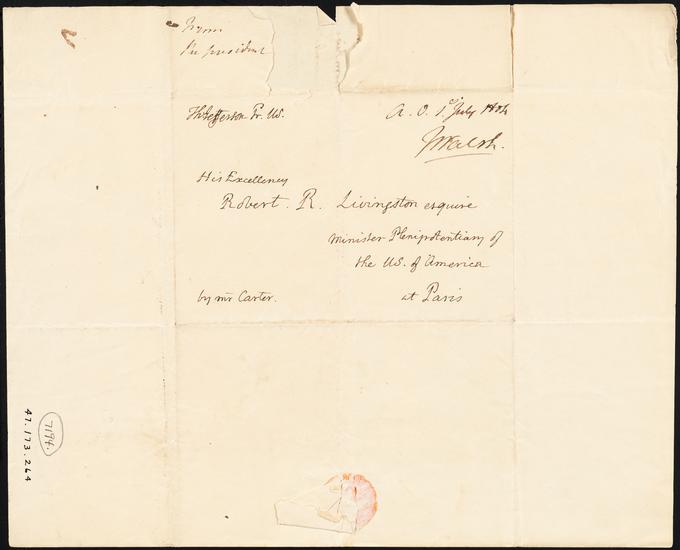 From
the president
Th: Jefferson Pr. US.
A. O. 1st July 1804
JWalsh.
His Excellency
Robert. R. Livingston esquire
Minister Plenipotentiary of
the US. of America
by mr Carter.
at Paris
7194.
47.173.264